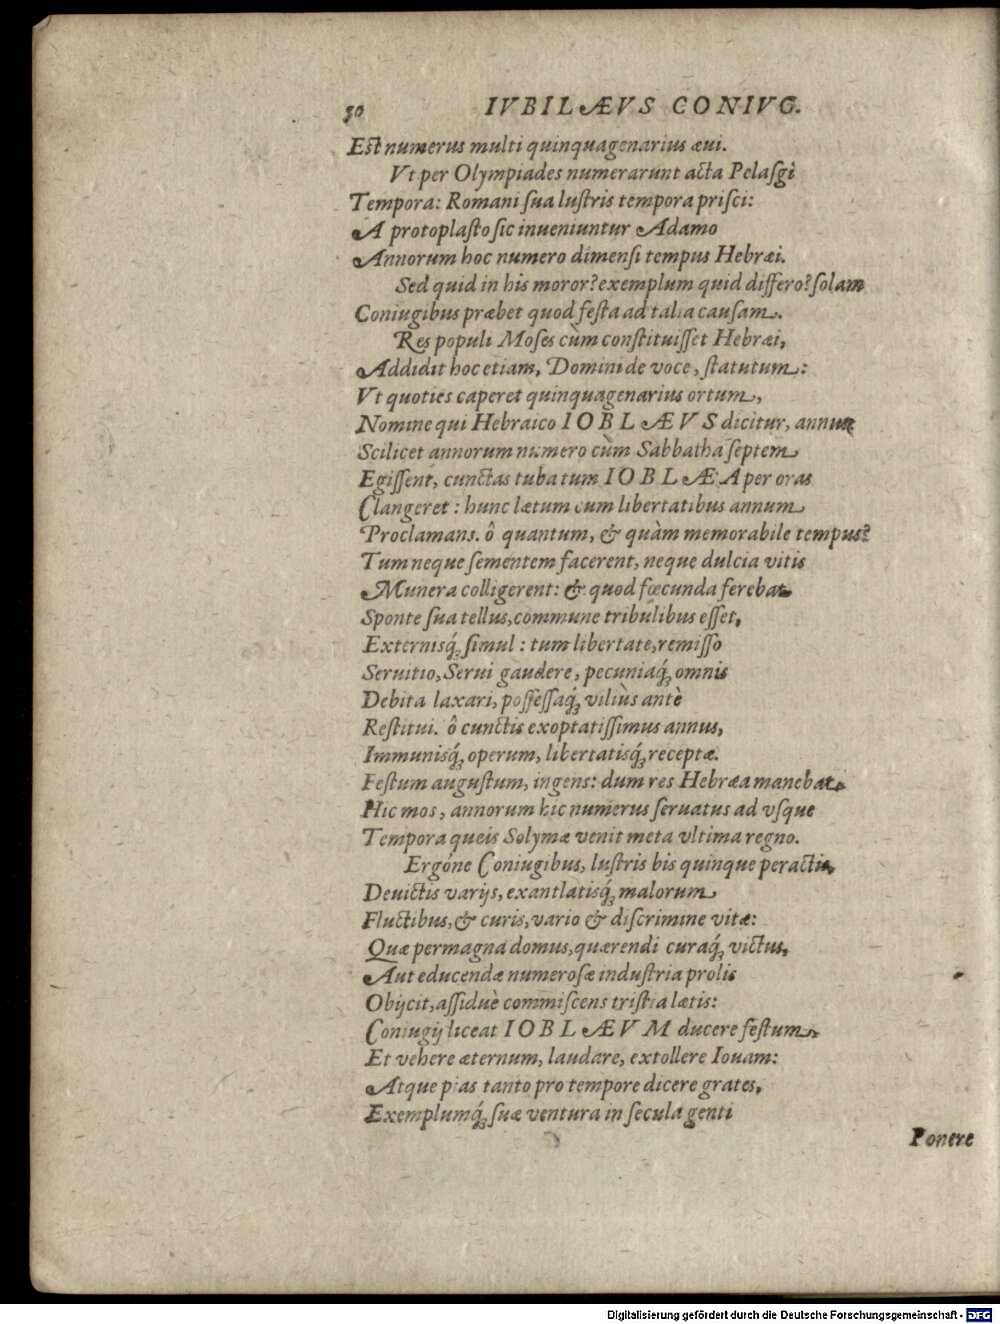 50 IVBILÆVS CONIVG.
Est numerus multi quinquagenarius æui.
Vt per Olympiades numerarunt acta Pelasgi
Tempora: Romani sua lustris tempora prisci:
A protoplasto sic inueniuntur Adamo
Annorum hoc numero dimensi tempus Hebræi.
Sed quid in his moror? exemplum quid differo? solam
Coniugibus præbet quod festa ad talia causam.
Res populi Moses cùm constituisset Hebræi,
Addidit hoc etiam, Domini de voce, statutum:
Vt quoties caperet quinquagenarius ortum,
Nomine qui Hebraico IOBLÆVS dicitur, annus
Scilicet annorum numero cùm Sabbatha septem
Egissent, cunctas tuba tum IOBLÆA per oras
Clangeret: hunc lætum cum libertatibus annum
Proclamans. ô quantum, & quàm memorabile tempus?
Tum neque sementem facerent, neque dulcia vitis
Munera colligerent: & quod fœcunda ferebat
Sponte sua tellus, commune tribulibus esset,
Externisq́; simul: tum libertate, remisso
Seruitio, Serui gaudere, pecuniaq́; omnis
Debita laxari, possessaq́; viliùs antè
Restitui. ô cunctis exoptatissimus annus,
Immunisq́; operum, libertatisq́; receptæ.
Festum augustum, ingens: dum res Hebræa manebat,
Hic mos, annorum hic numerus seruatus ad vsque
Tempora queis Solymæ venit meta vltima regno.
Ergóne Coniugibus, lustris bis quinque peractis,
Deuictis varijs, exantlatisq́; malorum
Fluctibus, & curis, vario & discrimine vitæ:
Quæ permagna domus, quærendi curaq́; victus,
Aut educendæ numerosæ industria prolis
Obijcit, assiduè commiscens tristia lætis:
Coniugij liceat IOBLÆVM ducere festum,
Et vehere æternum, laudare, extollere Iouam:
Atque pias tanto pro tempore dicere grates,
Exemplumq́; suæ ventura in secula genti
Ponere
Digitalisierung gefördert durch die Deutsche Forschungsgemeinschaft - DFG